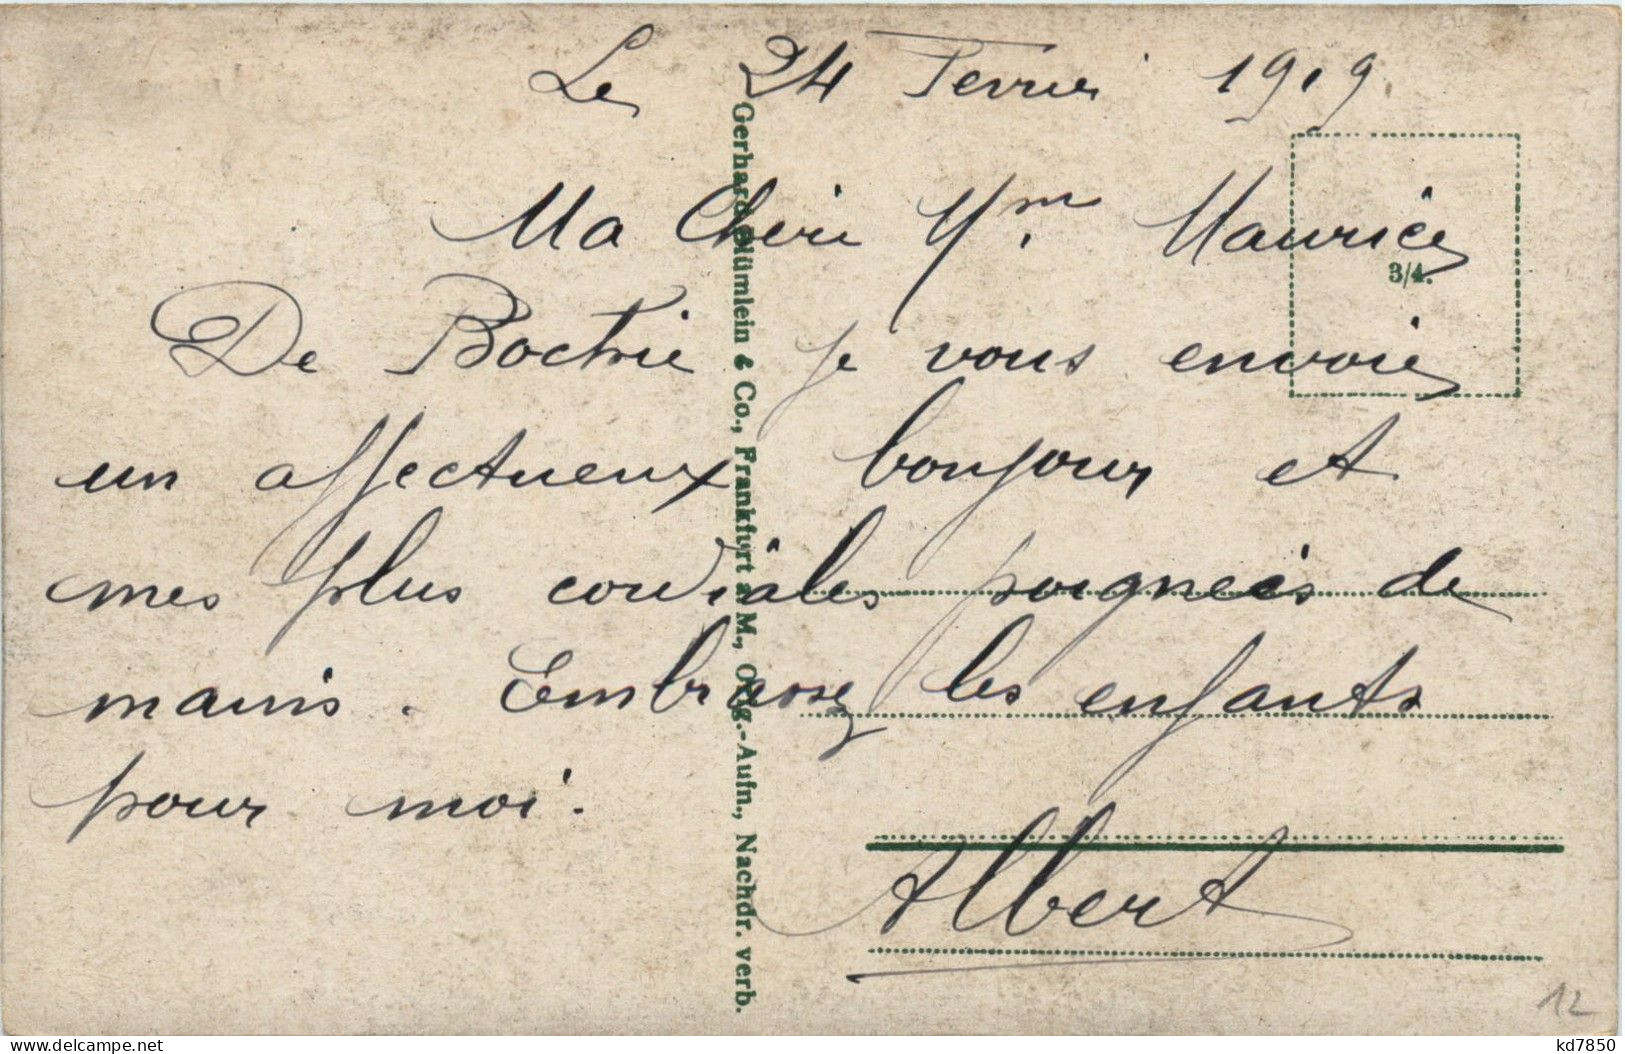 Le 24 Fevrier 1919
Ma Chere Mme Maurice
De Bochie je vous envoie
un affectueux bonjour et
mes plus cordiales poignées de
mains. Embrassez les enfants
pour moi.
Albert
Gerhard Blümlein & Co., Frankfurt a. M., Orig.-Aufn., Nachdr. verb.
3/4.
12
kd7850